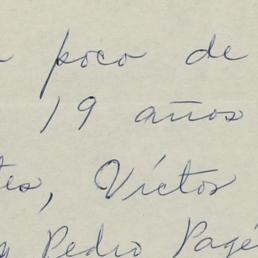 poco de
19 años
tes, Víctor
Pedro Pagé